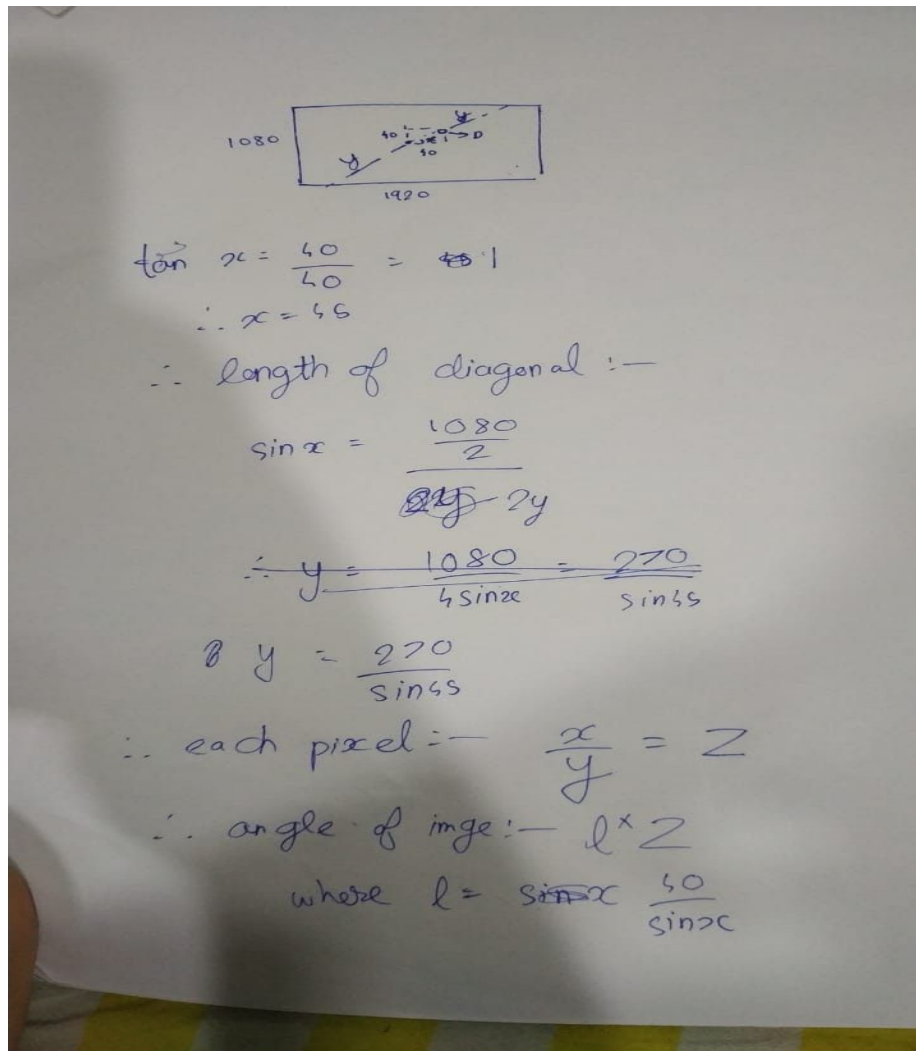 1080
y
40
x
D
40
y
1920
tan x = 40/40 = 1
∴ x = 45
∴ length of diagonal :—
sin x = (1080/2)/2y
∴ y = 1080/4sinx = 270/sin45
y = 270/sin45
∴ each pixel :— x/y = Z
∴ angle of imge :— l × Z
where l = 40/sinx